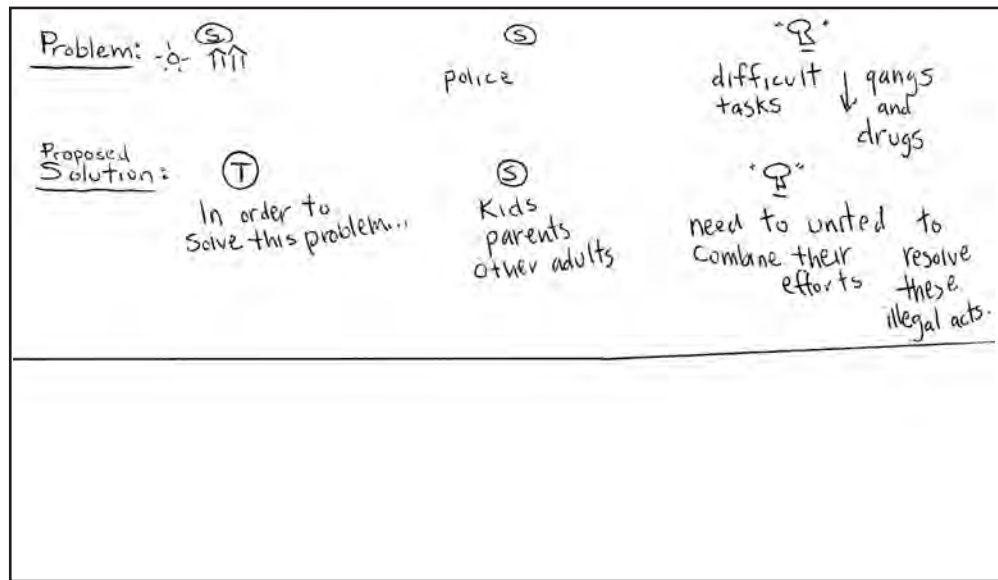 Problem: S S
police
difficult tasks ↓ gangs and drugs
Proposed Solution: T S
In order to
Solve this problem...
Kids
parents
other adults
need to united to
Combine their resolve
efforts these
illegal acts.